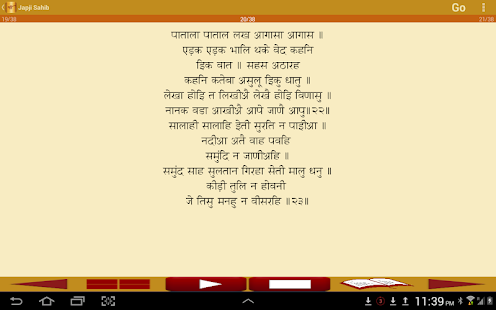 Japji Sahib
Go
19/38
20/38
21/38
पाताला पाताल लख आगासा आगास ॥
एड़क एड़क भालि थके वेद कहनि
इिक वात ॥ सहस अठारह
कहनि कतेबा असुलू इिकु धातु ॥
लेखा होइि त लिखीऔ लेखै होइि विणासु ॥
नानक वडा आखीऔ आपे जाणै आपु॥२२॥
सालाही सालाहि इेती सुरति न पाईीआ ॥
नदीआ अतै वाह पवहि
समुंदि न जाणीअहि ॥
समुंद साह सुलतान गिरहा सेती मालु धनु ॥
कीड़ी तुलि न होवनी
जे तिसु मनहु न वीसरहि ॥२३॥
11:39 PM